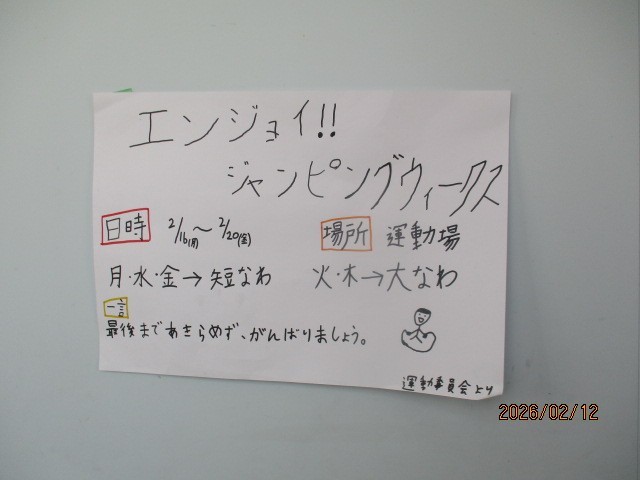 エンジョイ!!
ジャンピングウィークス
日時 2/16(月)～2/20(金) 場所 運動場
月・水・金→短なわ 火・木→大なわ
一言
最後まであきらめず、がんばりましょう。
運動委員会より
2026/02/12